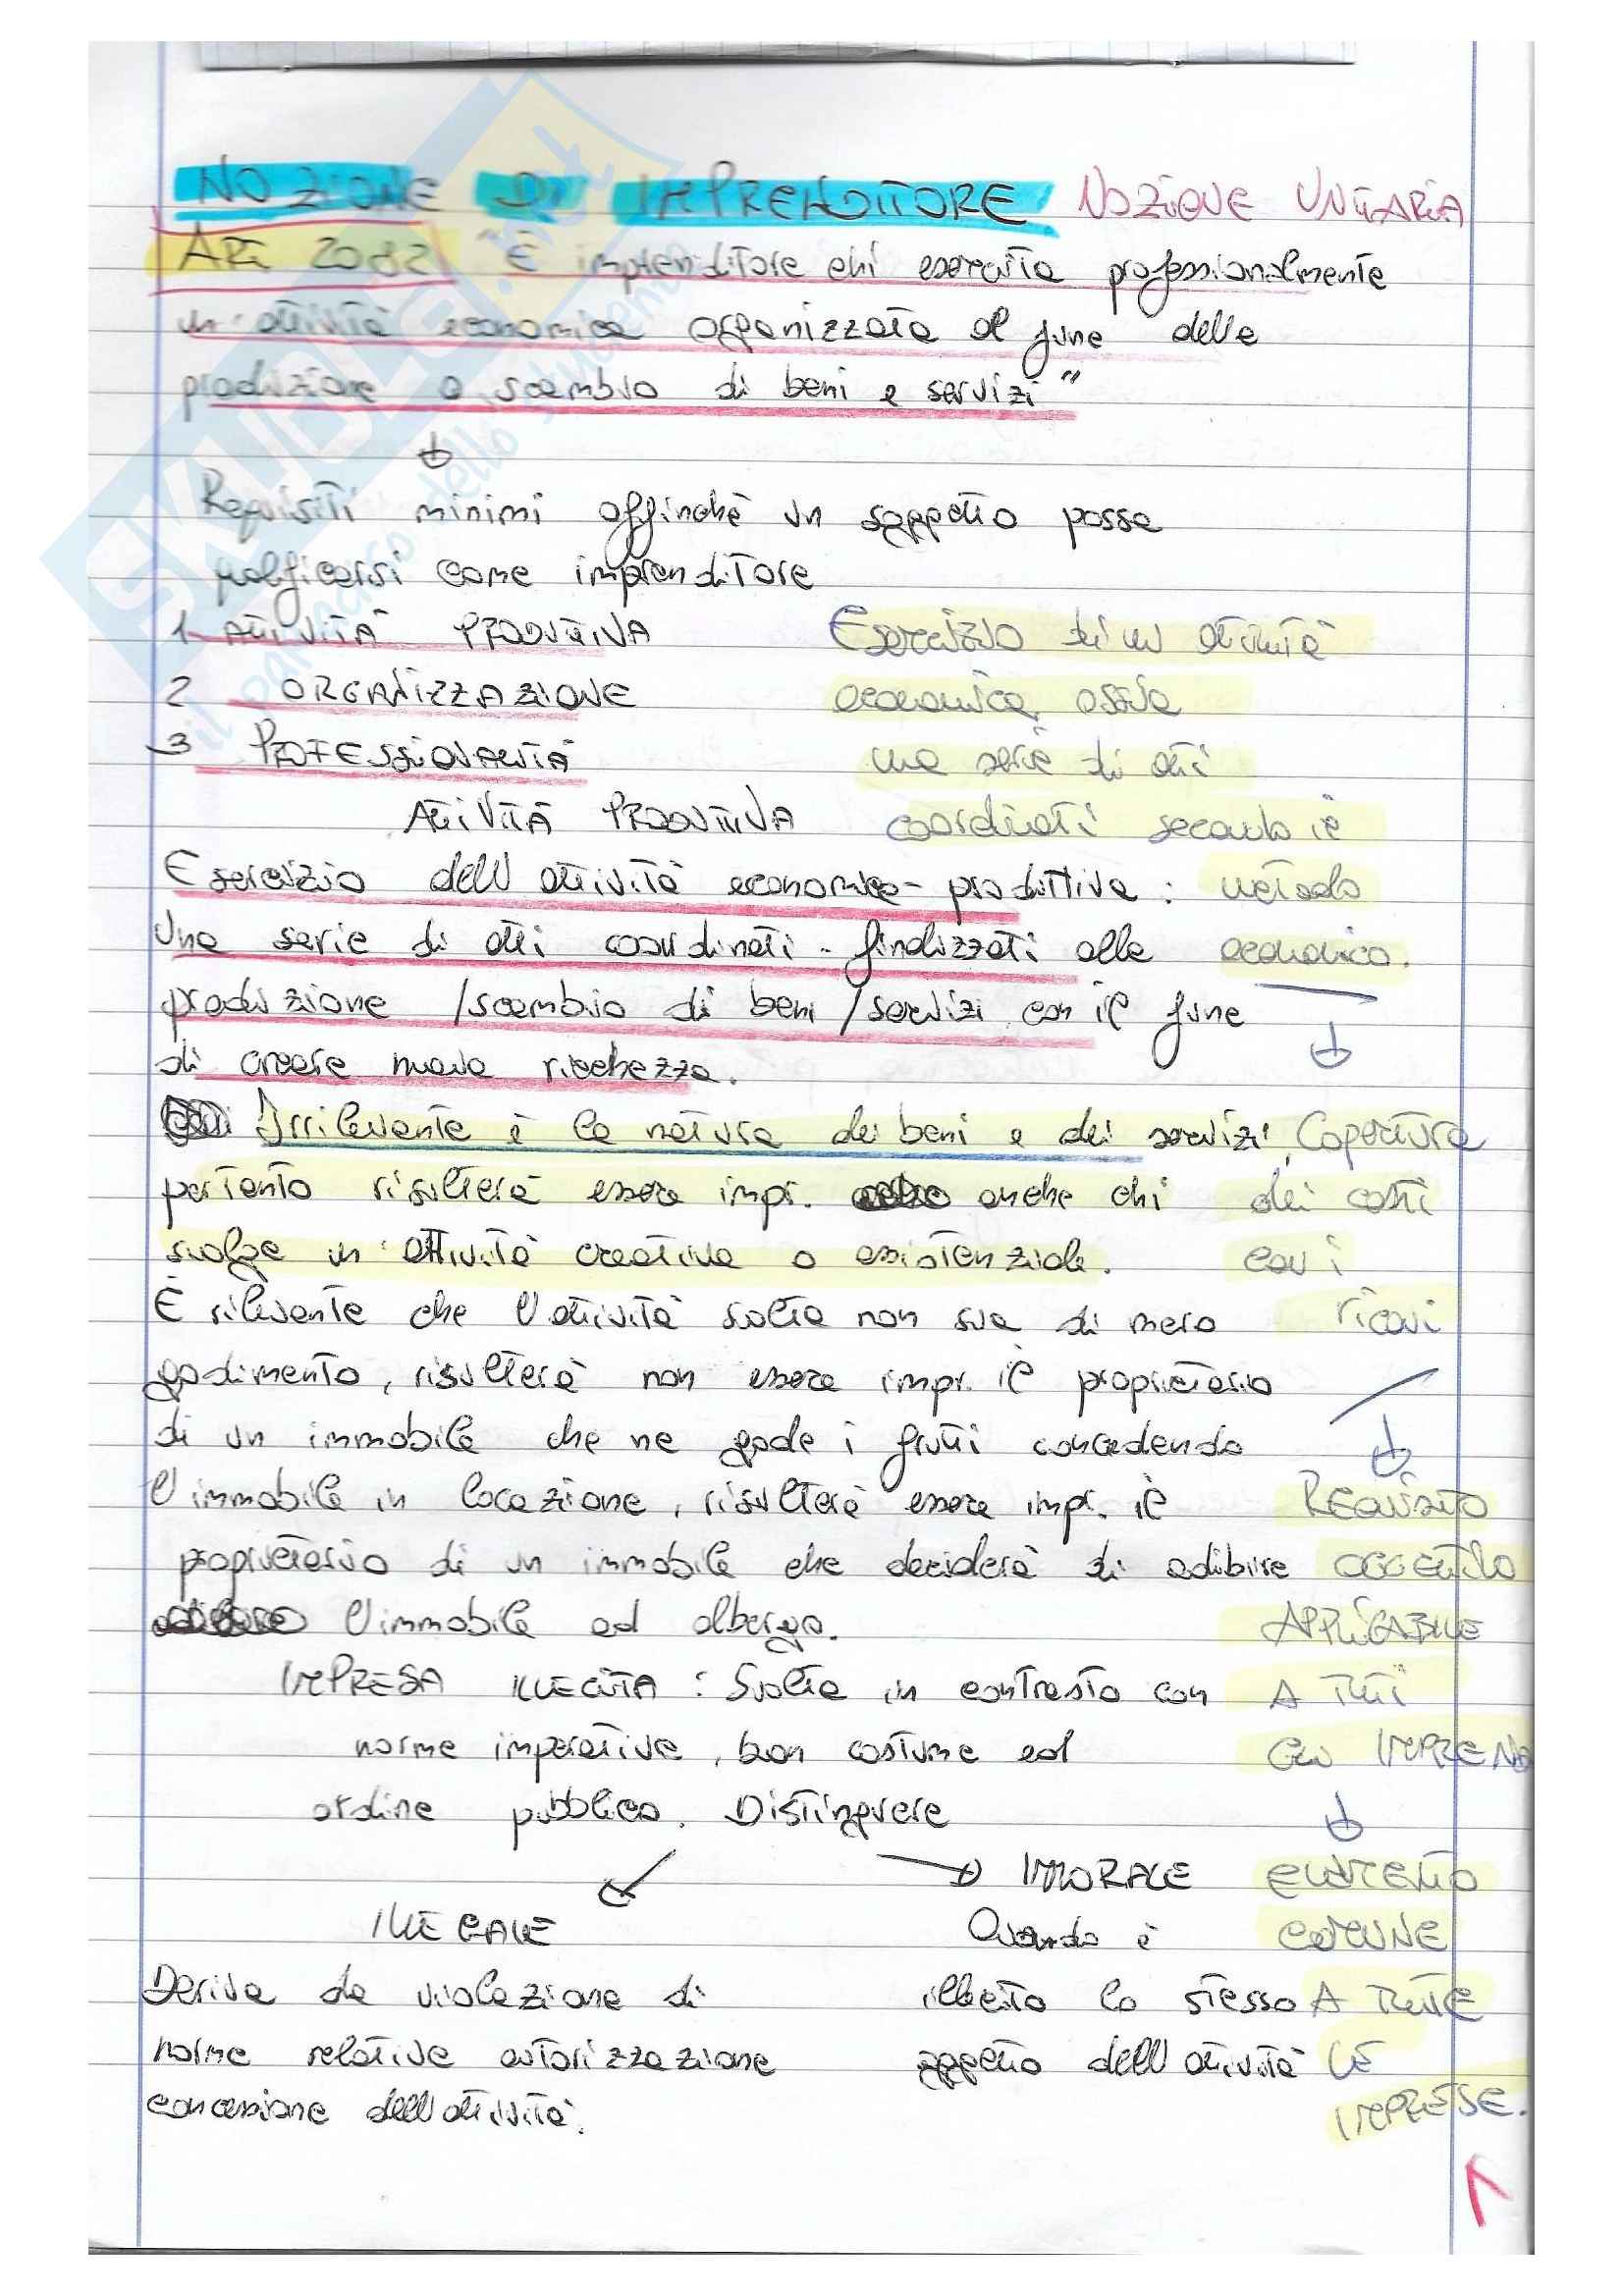 NOZIONE DI IMPRENDITORE NOZIONE UNITARIA
ART 2082 "È imprenditore chi esercita professionalmente
un'attività economica organizzata al fine della
produzione o scambio di beni e servizi"
Requisiti minimi affinché un soggetto possa
qualificarsi come imprenditore
1 ATTIVITÀ PRODUTTIVA
2 ORGANIZZAZIONE
3 PROFESSIONALITÀ
ATTIVITÀ PRODUTTIVA
Esercizio dell'attività economico-produttiva:
Una serie di atti coordinati - finalizzati alla
produzione /scambio di beni /servizi con il fine
di creare nuova ricchezza.
Irrilevante è la natura dei beni e dei servizi,
pertanto risulterà essere impr. anche chi
svolge un'attività creativa o assistenziale.
È rilevante che l'attività svolta non sia di mero
godimento, risulterà non essere impr. il proprietario
di un immobile che ne gode i frutti concedendo
l'immobile in locazione, risulterà essere impr. il
proprietario di un immobile che deciderà di adibire
l'immobile ad albergo.
IMPRESA ILLECITA: Svolta in contrasto con
norme imperative, buon costume ed
ordine pubblico. Distinguere
ILLEGALE
Deriva da violazione di
norme relative autorizzazione
concessione dell'attività.
IMMORALE
Quando è
illecito lo stesso
oggetto dell'attività
Esercizio di un attività
economica, ossia
una serie di atti
coordinati secondo il
metodo
economico.
Copertura
dei costi
con i
ricavi
REQUISITO
OGGETTIVO
APPLICABILE
A TUTTI
GLI IMPREND
ELEMENTO
COMUNE
A TUTTE
LE
IMPRESE.
SKUOLA.net
il paradiso dello studente